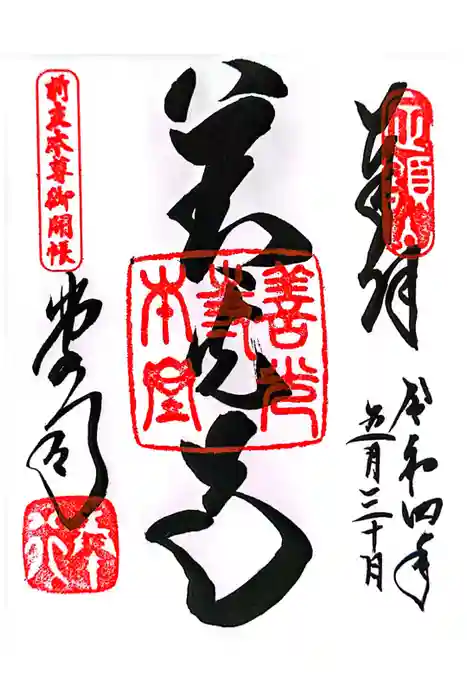 定額山
奉拝
令和四年
五月三十日
善光寺
善光寺本堂
前立本尊御開帳
堂司